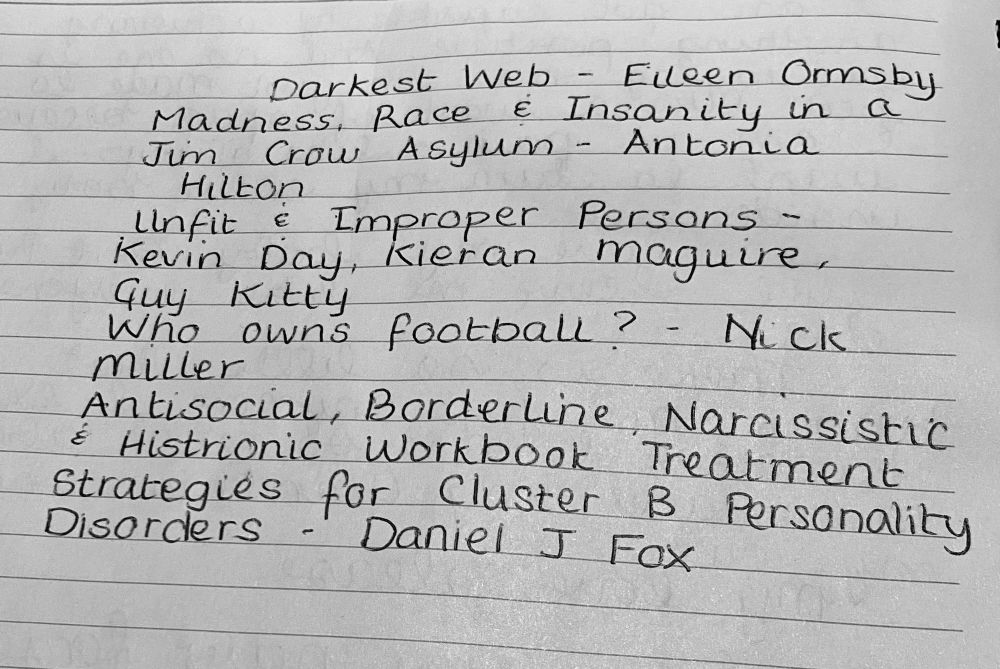 Darkest Web - Eileen Ormsby
Madness, Race & Insanity in a
Jim Crow Asylum - Antonia
Hilton
Unfit & Improper Persons -
Kevin Day, Kieran Maguire,
Guy Kitty
Who owns football? - Nick
Miller
Antisocial, Borderline, Narcissistic
& Histrionic Workbook Treatment
Strategies for Cluster B Personality
Disorders - Daniel J Fox